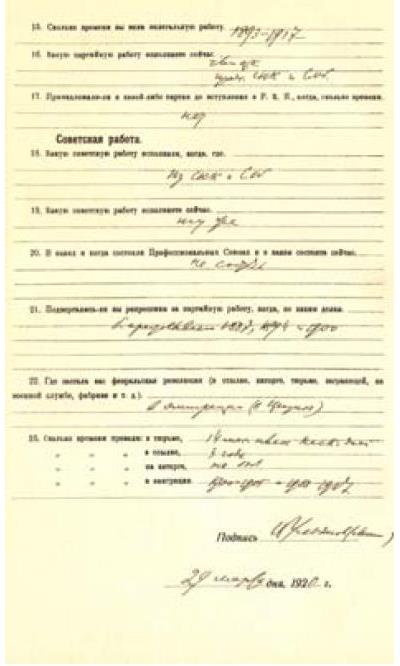 15. Сколько времени вы вели нелегальную работу. 1893–1917
16. Какую партийную работу исполняете сейчас.
член цк
пред. СНК и СТО
17. Принадлежали-ли к какой-либо партии до вступления в Р. К. П., когда, сколько времени.
нет
Советская работа.
18. Какую советскую работу исполняли, когда, где.
СНК и СТО
19. Какую советскую работу исполняете сейчас.
20. В каких и когда состояли Профессиональных Союзах и в каком состоите сейчас.
не
21. Подвергались-ли вы репрессиям за партийную работу, когда, по каким делам.
1887, 1900
22. Где застала вас февральская революция (в ссылке, каторге, тюрьме, заграницей, на
военной службе, фабрике и т. д.).
В эмиграции (в
23. Сколько времени провели: в тюрьме, 14 мес
„ „ „ в ссылке, 3 года
„ „ „ на каторге, не был
„ „ „ в эмиграции.
Подпись
29 марта дня, 1920 г.